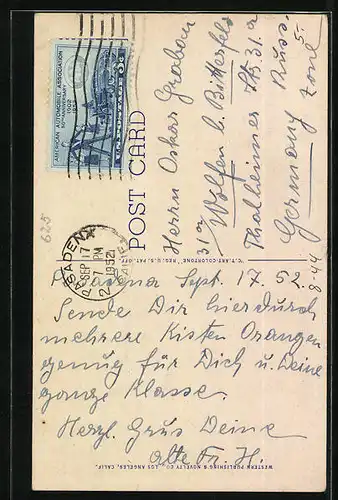 AMERICAN AUTOMOBILE ASSOCIATION
50TH ANNIVERSARY
1902
1952
3¢
U.S. POSTAGE
PASADENA
SEP 17
PM
1952
CALIF.
625
POST CARD
Herrn Oskar Grabow
31a
Wolfen b. Bitterfeld
Thalheimer Str. 31a
Germany Russ.
Zone
8-44
"C.T. ART-COLORTONE" REG. U.S. PAT. OFF.
Pasadena Sept. 17. 52.
Sende Dir hierdurch
mehrere Kisten Orangen
genug für Dich u. Deine
ganze Klasse.
Herzl. Grus Deine
alte Fr. H.
WESTERN PUBLISHING & NOVELTY CO., LOS ANGELES, CALIF.